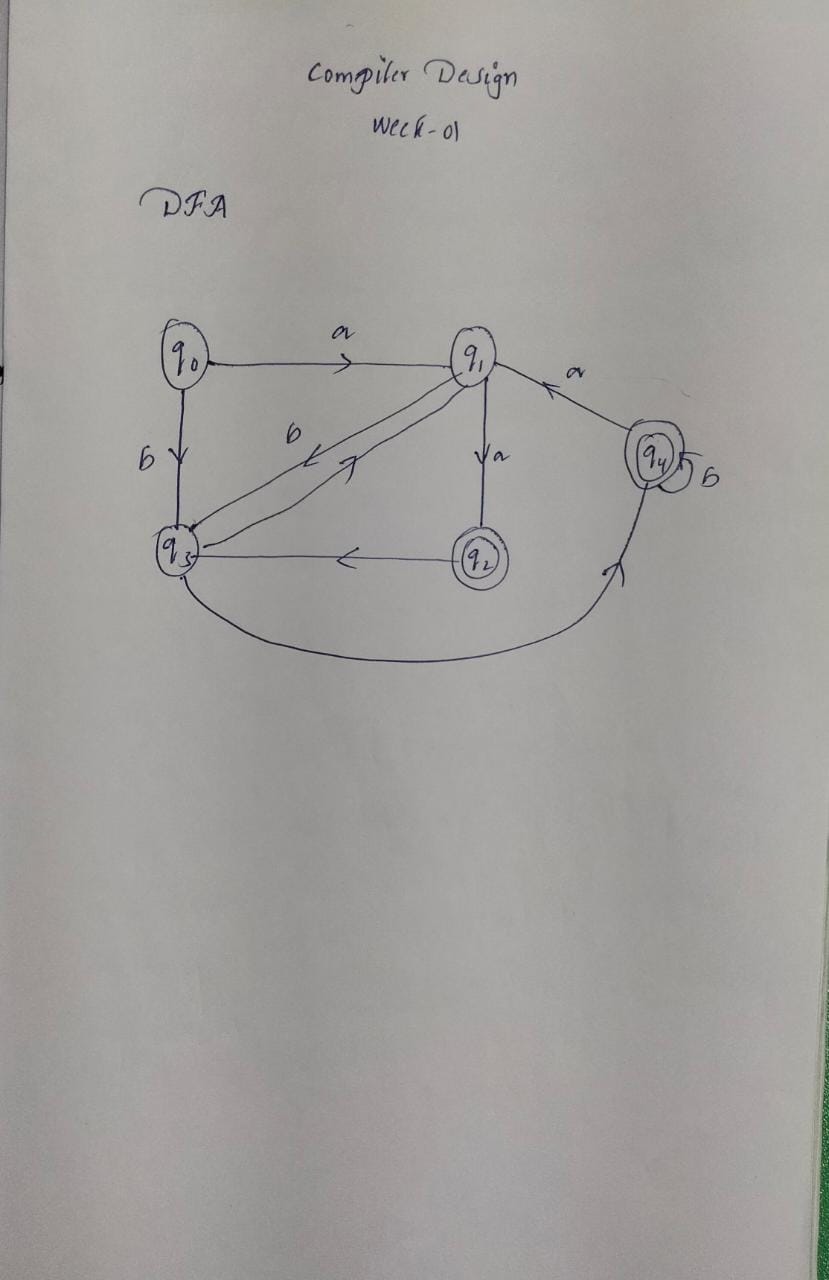 Compiler Design
Week-01
DFA
a
q0
q1
a
b
b
a
q4
b
q3
q2